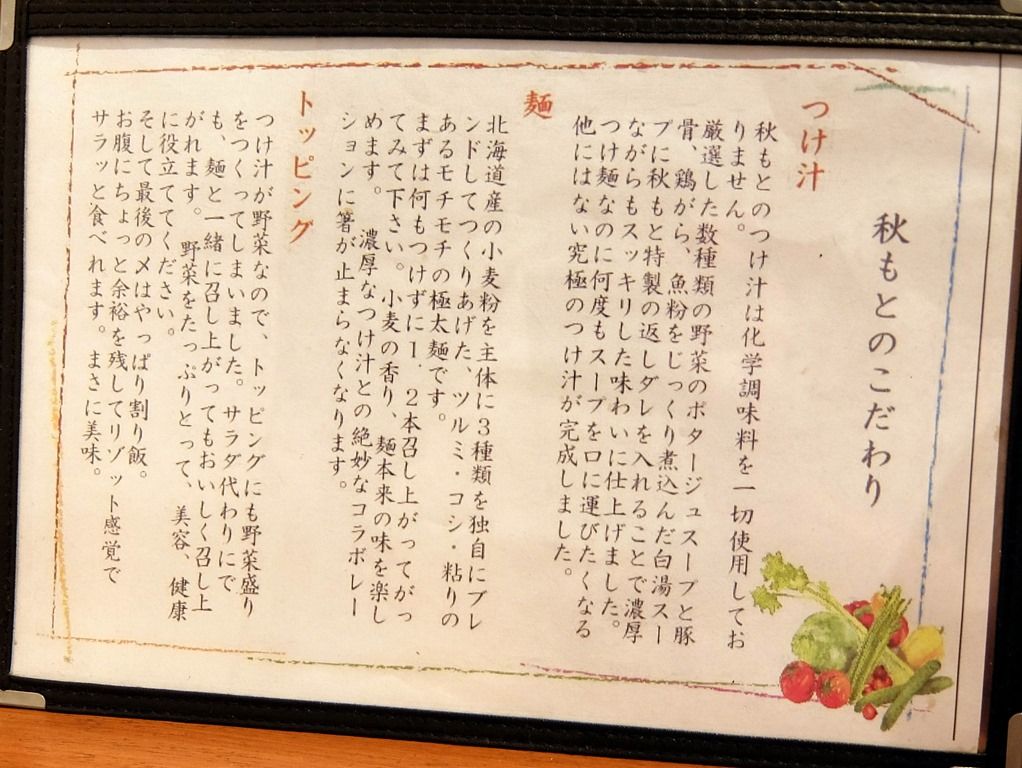 秋もとのこだわり
つけ汁
秋もとのつけ汁は化学調味料を一切使用してお
りません。
厳選した数種類の野菜のポタージュスープと豚
骨、鶏がら、魚粉をじっくり煮込んだ白湯スー
プに秋もと特製の返しダレを入れることで濃厚
ながらもスッキリした味わいに仕上げました。
つけ麺なのに何度もスープを口に運びたくなる
他にはない究極のつけ汁が完成しました。
麺
北海道産の小麦粉を主体に3種類を独自にブレ
ンドしてつくりあげた、ツルミ・コシ・粘りの
あるモチモチの極太麺です。
まずは何もつけずに1.2本召し上がってがっ
てみて下さい。小麦の香り、麺本来の味を楽し
めます。 濃厚なつけ汁との絶妙なコラボレー
ションに箸が止まらなくなります。
トッピング
つけ汁が野菜なので、トッピングにも野菜盛り
をつくってしまいました。サラダ代わりにで
も、麺と一緒に召し上がってもおいしく召し上
がれます。 野菜をたっぷりとって、美容、健康
に役立ててください。
そして最後の〆はやっぱり割り飯。
お腹にちょっと余裕を残してリゾット感覚で
サラッと食べれます。まさに美味。